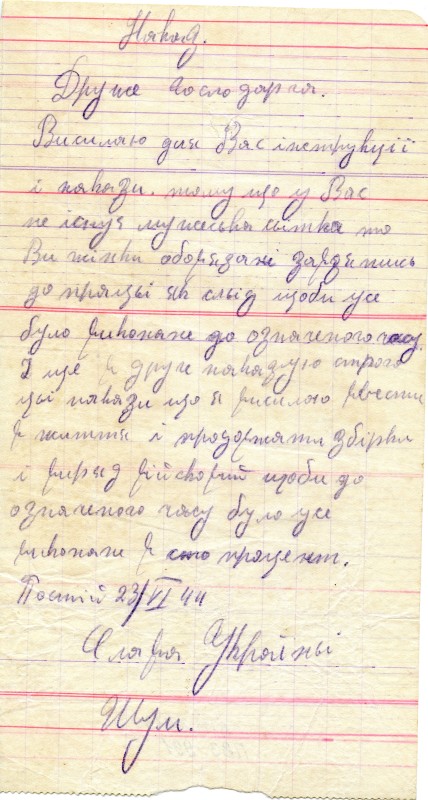 Наказ.
Друже Господарка.
Висилаю для Вас інструкції
і накази. тому що у Вас
не існує мужеська сітка то
Ви жінки обовязані
до праці як слід щоби усе
було виконане до означеного часу.
І ще в друге наказую строго
ці накази що я висилаю ввести
в життя і продовжати збірки
і виряд військовий щоби до
означеного часу було усе
виконане в сто процент.
Постій 23/VI 44
Слава Україні
Шум.